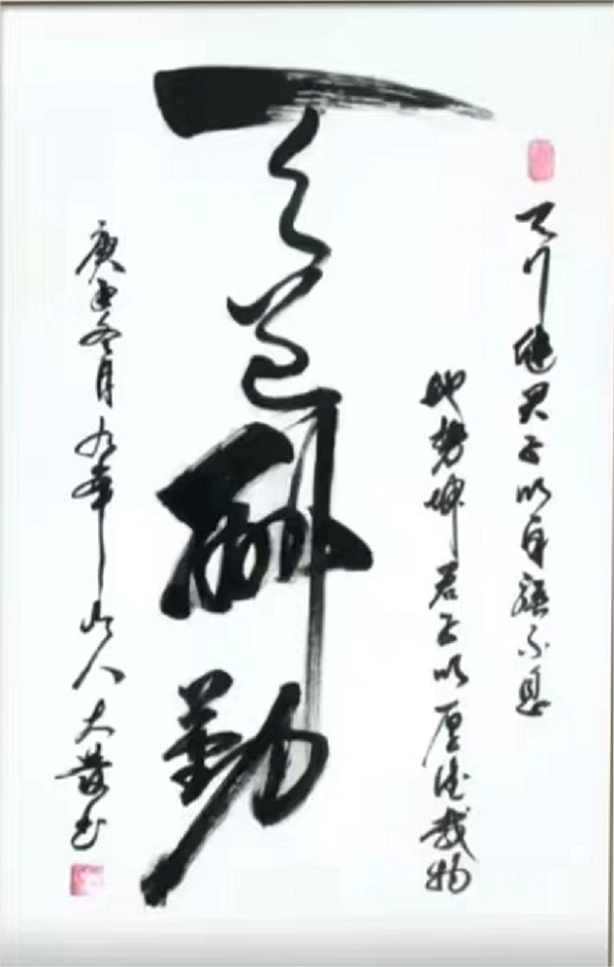 天行健君子以自强不息
地势坤君子以厚德载物
天道酬勤
庚子冬月九華山人大發书